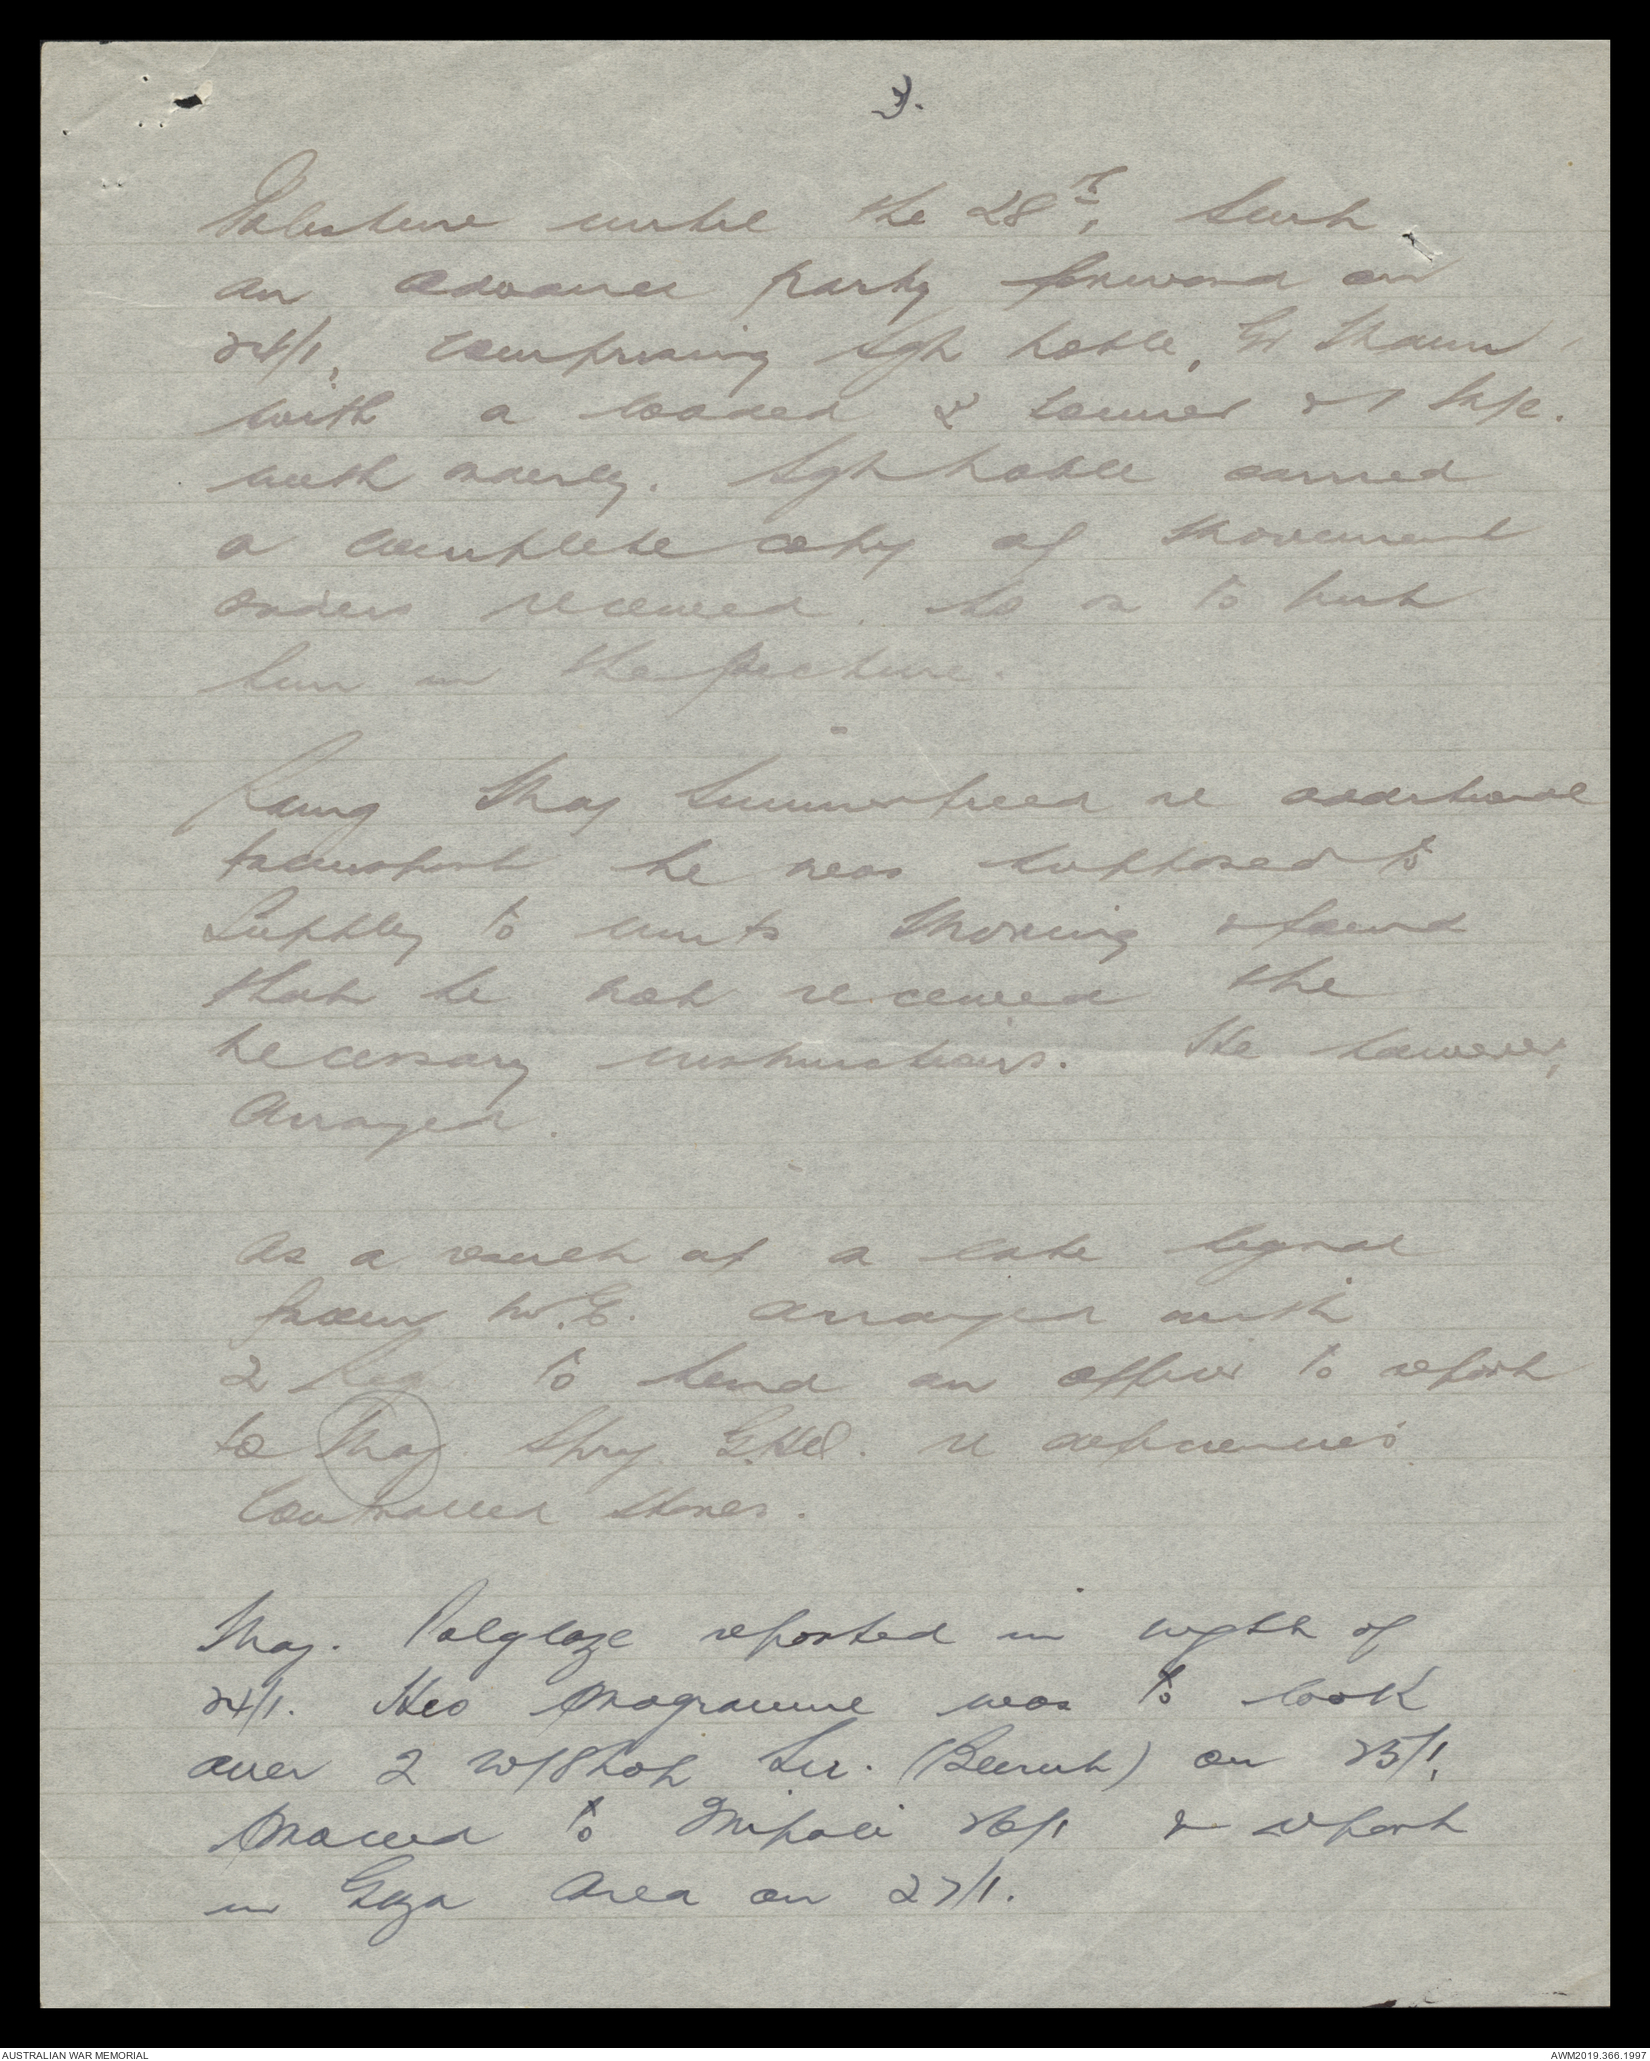 3.
Palestine until the 28th, Sent
an advance party forward on
24/1, comprising Sgt Noble, Gr Mann
with a loaded 2 tonner & 1 M/c.
with orderly. Sgt Noble carried
a complete copy of Movement
orders received so as to put
him in the picture.
Rang Maj Summerfield re additional
transport he was supposed to
Supply to units Moving & found
that he not received the
necessary instructions. He however,
Arranged.
As a result of a late signal
from M.E. arranged with
2 to send an officer to report
to Maj G.H.Q. re deficiencies
Controlled Stores.
Maj. Polglaze reported in night of
24/1. His programme was to look
over 2 W/Shop Sec. (Beerut) on 25/1,
Proceed to Tripoli 26/1 & report
in Gaza Area on 27/1.
AUSTRALIAN WAR MEMORIAL
AWM2019.366.1997